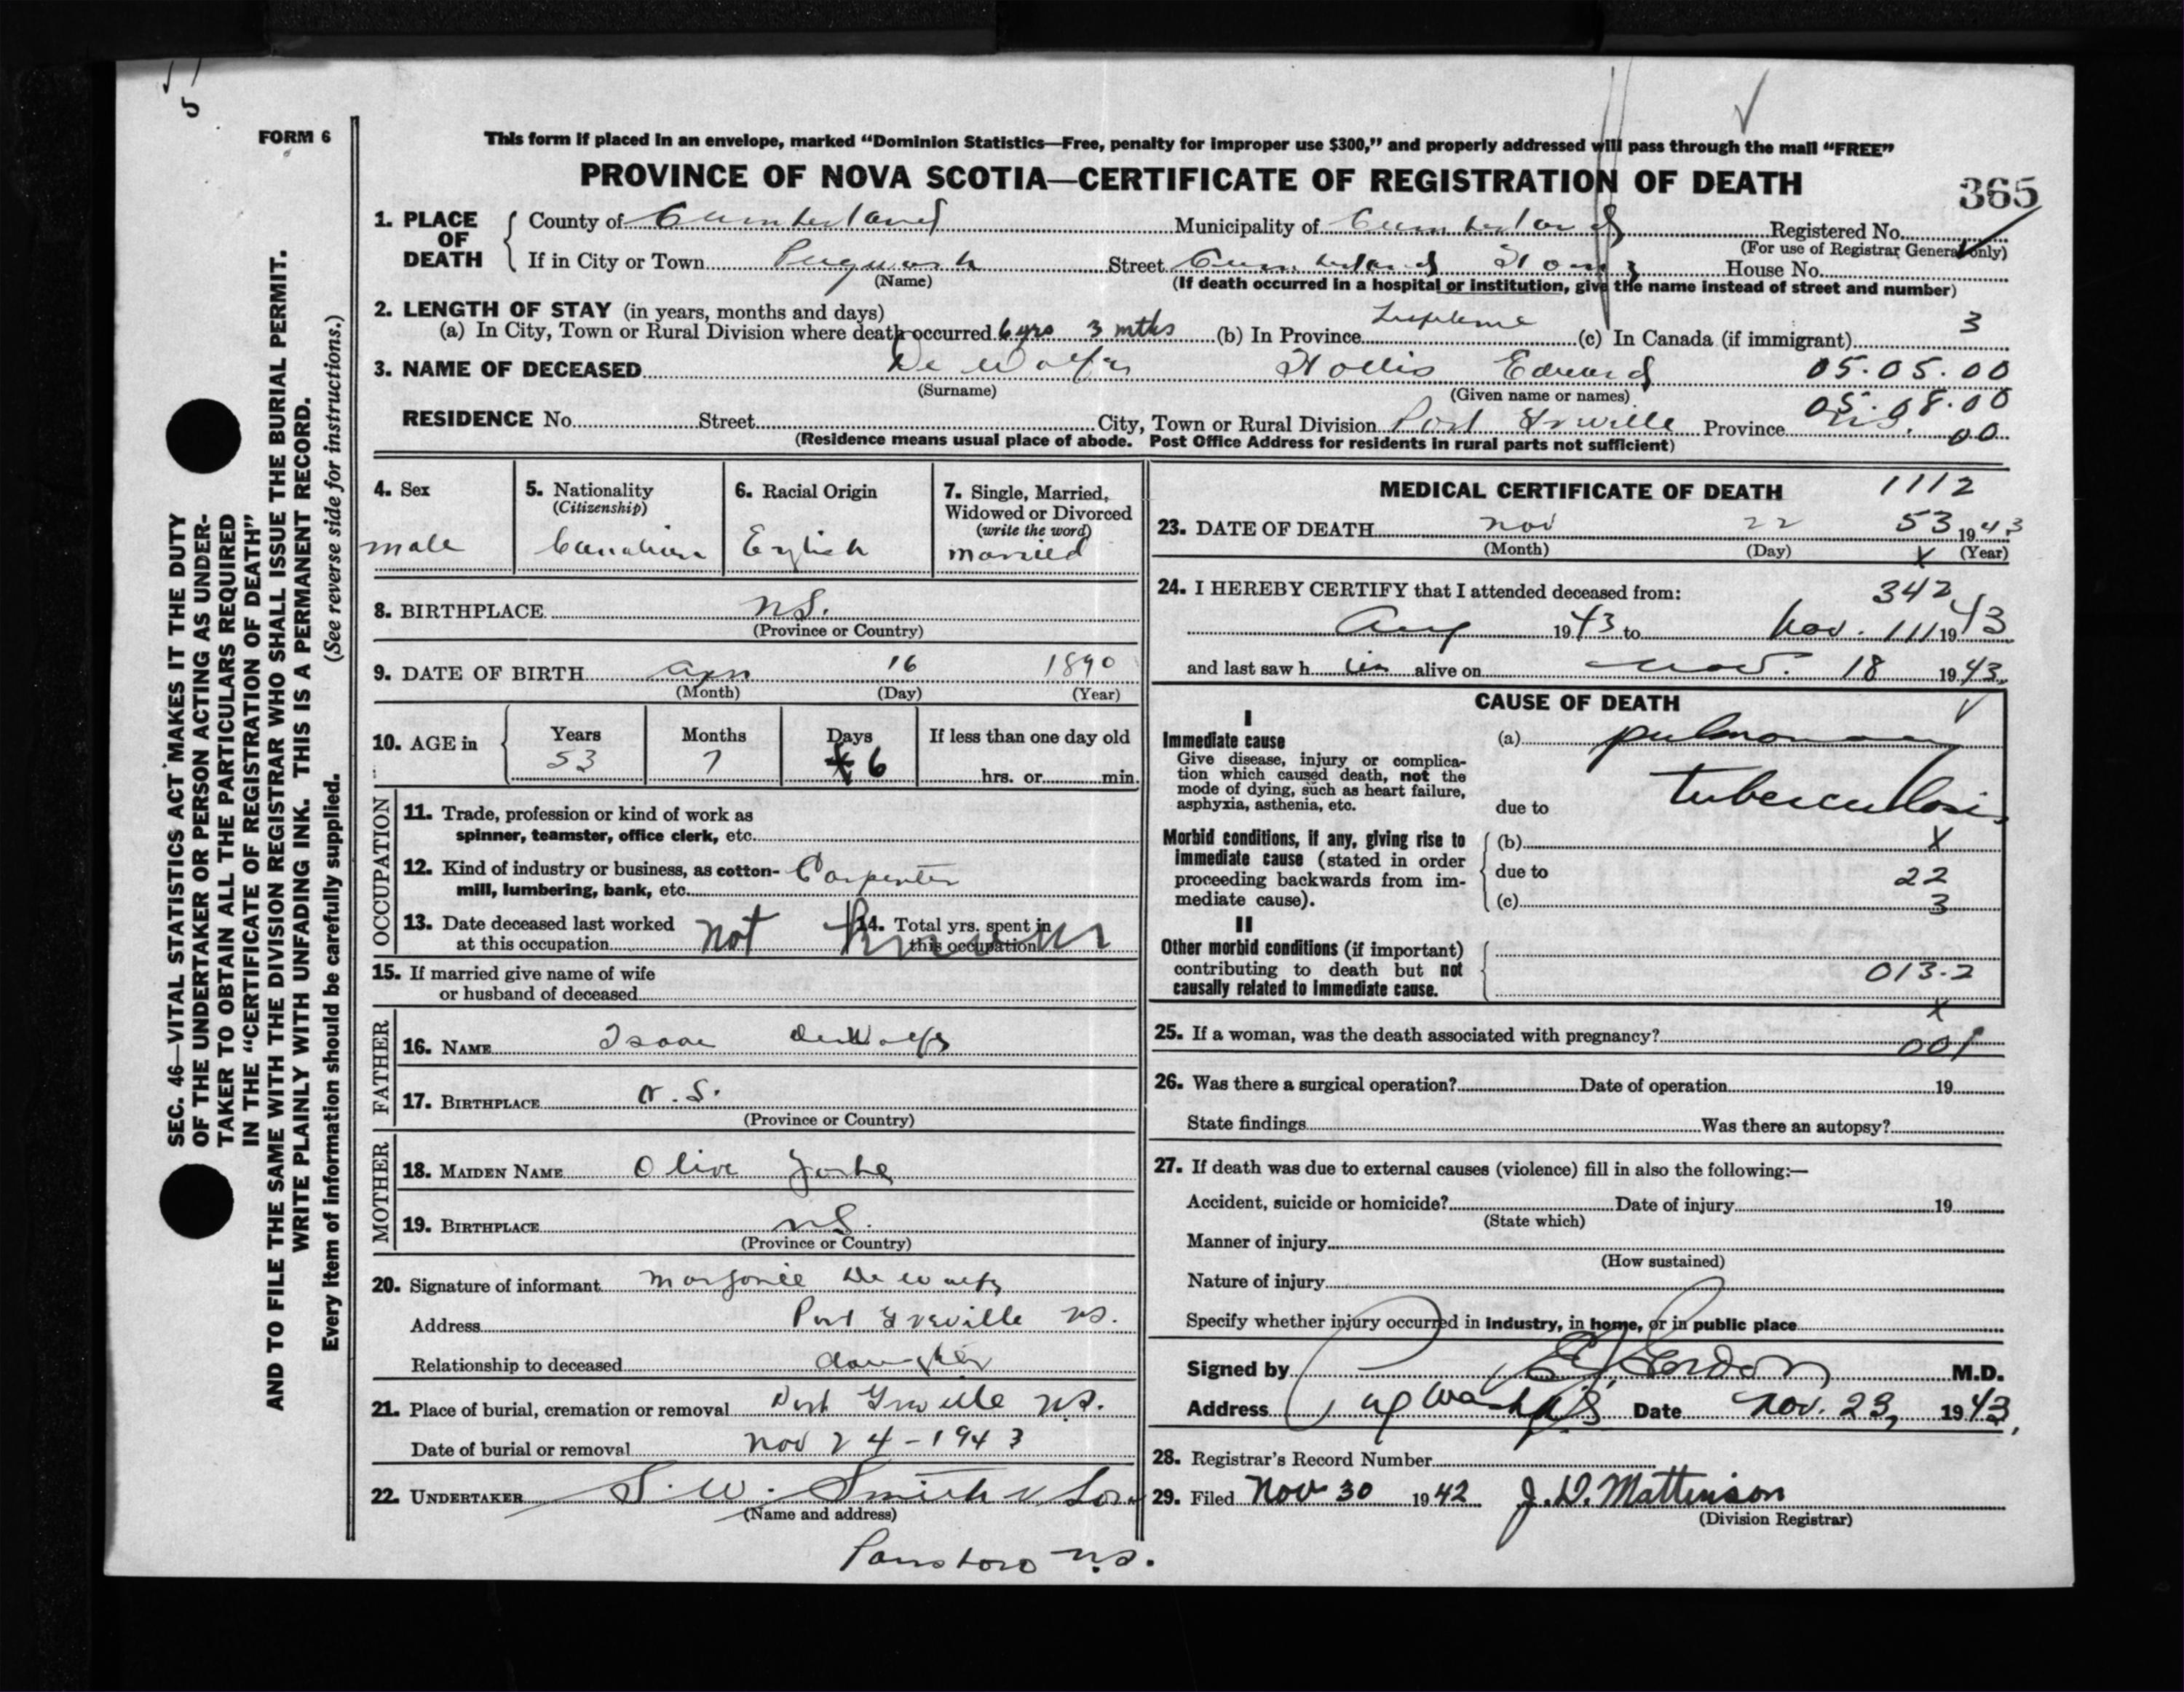 FORM 6
This form if placed in an envelope, marked “Dominion Statistics—Free, penalty for improper use $300,” and properly addressed will pass through the mail “FREE”
PROVINCE OF NOVA SCOTIA—CERTIFICATE OF REGISTRATION OF DEATH
365
1. PLACE OF DEATH
County of Cumberland Municipality of Cumberland Registered No.
(For use of Registrar General only)
If in City or Town Pugwash Street Cumberland House No.
(Name)
(If death occurred in a hospital or institution, give the name instead of street and number)
2. LENGTH OF STAY (in years, months and days)
(a) In City, Town or Rural Division where death occurred 6 yrs 3 mths (b) In Province Lifetime (c) In Canada (if immigrant)
3
3. NAME OF DECEASED De Wolfe Hollis Edward 05.05.00
(Surname) (Given name or names)
05.08.00
RESIDENCE No. Street City, Town or Rural Division Port Greville Province N.S. 00
(Residence means usual place of abode. Post Office Address for residents in rural parts not sufficient)
4. Sex
male
5. Nationality
(Citizenship)
Canadian
6. Racial Origin
English
7. Single, Married,
Widowed or Divorced
(write the word)
married
8. BIRTHPLACE N.S.
(Province or Country)
9. DATE OF BIRTH Apr 16 1890
(Month) (Day) (Year)
10. AGE in
Years Months Days If less than one day old
53 7 6
hrs. or min.
OCCUPATION
11. Trade, profession or kind of work as
spinner, teamster, office clerk, etc.
12. Kind of industry or business, as cotton-
mill, lumbering, bank, etc. Carpenter
13. Date deceased last worked
at this occupation not known
14. Total yrs. spent in
this occupation
15. If married give name of wife
or husband of deceased
FATHER
16. NAME Isaac DeWolfe
17. BIRTHPLACE N.S.
(Province or Country)
MOTHER
18. MAIDEN NAME Olive Yorke
19. BIRTHPLACE N.S.
(Province or Country)
20. Signature of informant Marjorie De Wolfe
Address Port Greville N.S.
Relationship to deceased daughter
21. Place of burial, cremation or removal Port Greville N.S.
Date of burial or removal Nov 24-1943
22. UNDERTAKER S. W. Smith & Son
(Name and address)
Parrsboro N.S.
MEDICAL CERTIFICATE OF DEATH
1112
23. DATE OF DEATH Nov 22 53 1943
(Month) (Day) (Year)
X
24. I HEREBY CERTIFY that I attended deceased from:
342
Aug 1943 to Nov. 1943
and last saw him alive on Nov. 18 1943
CAUSE OF DEATH
I
Immediate cause
Give disease, injury or complica-
tion which caused death, not the
mode of dying, such as heart failure,
asphyxia, asthenia, etc.
(a) pulmonary
tuberculosis
due to
Morbid conditions, if any, giving rise to
immediate cause (stated in order
proceeding backwards from im-
mediate cause).
(b) X
due to 22
(c) 3
II
Other morbid conditions (if important)
contributing to death but not
causally related to immediate cause.
013-2
X
25. If a woman, was the death associated with pregnancy?
001
26. Was there a surgical operation? Date of operation 19
State findings Was there an autopsy?
27. If death was due to external causes (violence) fill in also the following:—
Accident, suicide or homicide? Date of injury 19
(State which)
Manner of injury
(How sustained)
Nature of injury
Specify whether injury occurred in industry, in home, or in public place
Signed by Gordon M.D.
Address Pugwash N.S. Date Nov. 23, 1943,
28. Registrar’s Record Number
29. Filed Nov 30 1942 J.D. Mattinson
(Division Registrar)
SEC. 46—VITAL STATISTICS ACT MAKES IT THE DUTY
OF THE UNDERTAKER OR PERSON ACTING AS UNDER-
TAKER TO OBTAIN ALL THE PARTICULARS REQUIRED
IN THE “CERTIFICATE OF REGISTRATION OF DEATH”
AND TO FILE THE SAME WITH THE DIVISION REGISTRAR WHO SHALL ISSUE THE BURIAL PERMIT.
WRITE PLAINLY WITH UNFADING INK. THIS IS A PERMANENT RECORD.
Every item of information should be carefully supplied. (See reverse side for instructions.)